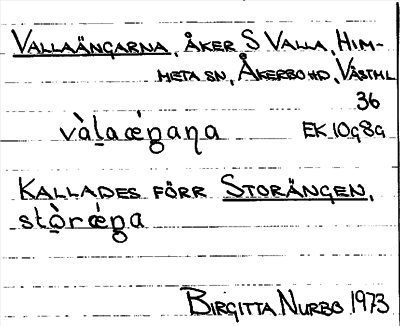 VALLAÄNGARNA, ÅKER S VALLA, HIM-
META SN, ÅKERBO HD, VÄSTML
36
vàḻaǽŋaɳa EK 10g8g
KALLADES FÖRR STORÄNGEN,
stò̱rǽŋa
BIRGITTA NURBO 1973